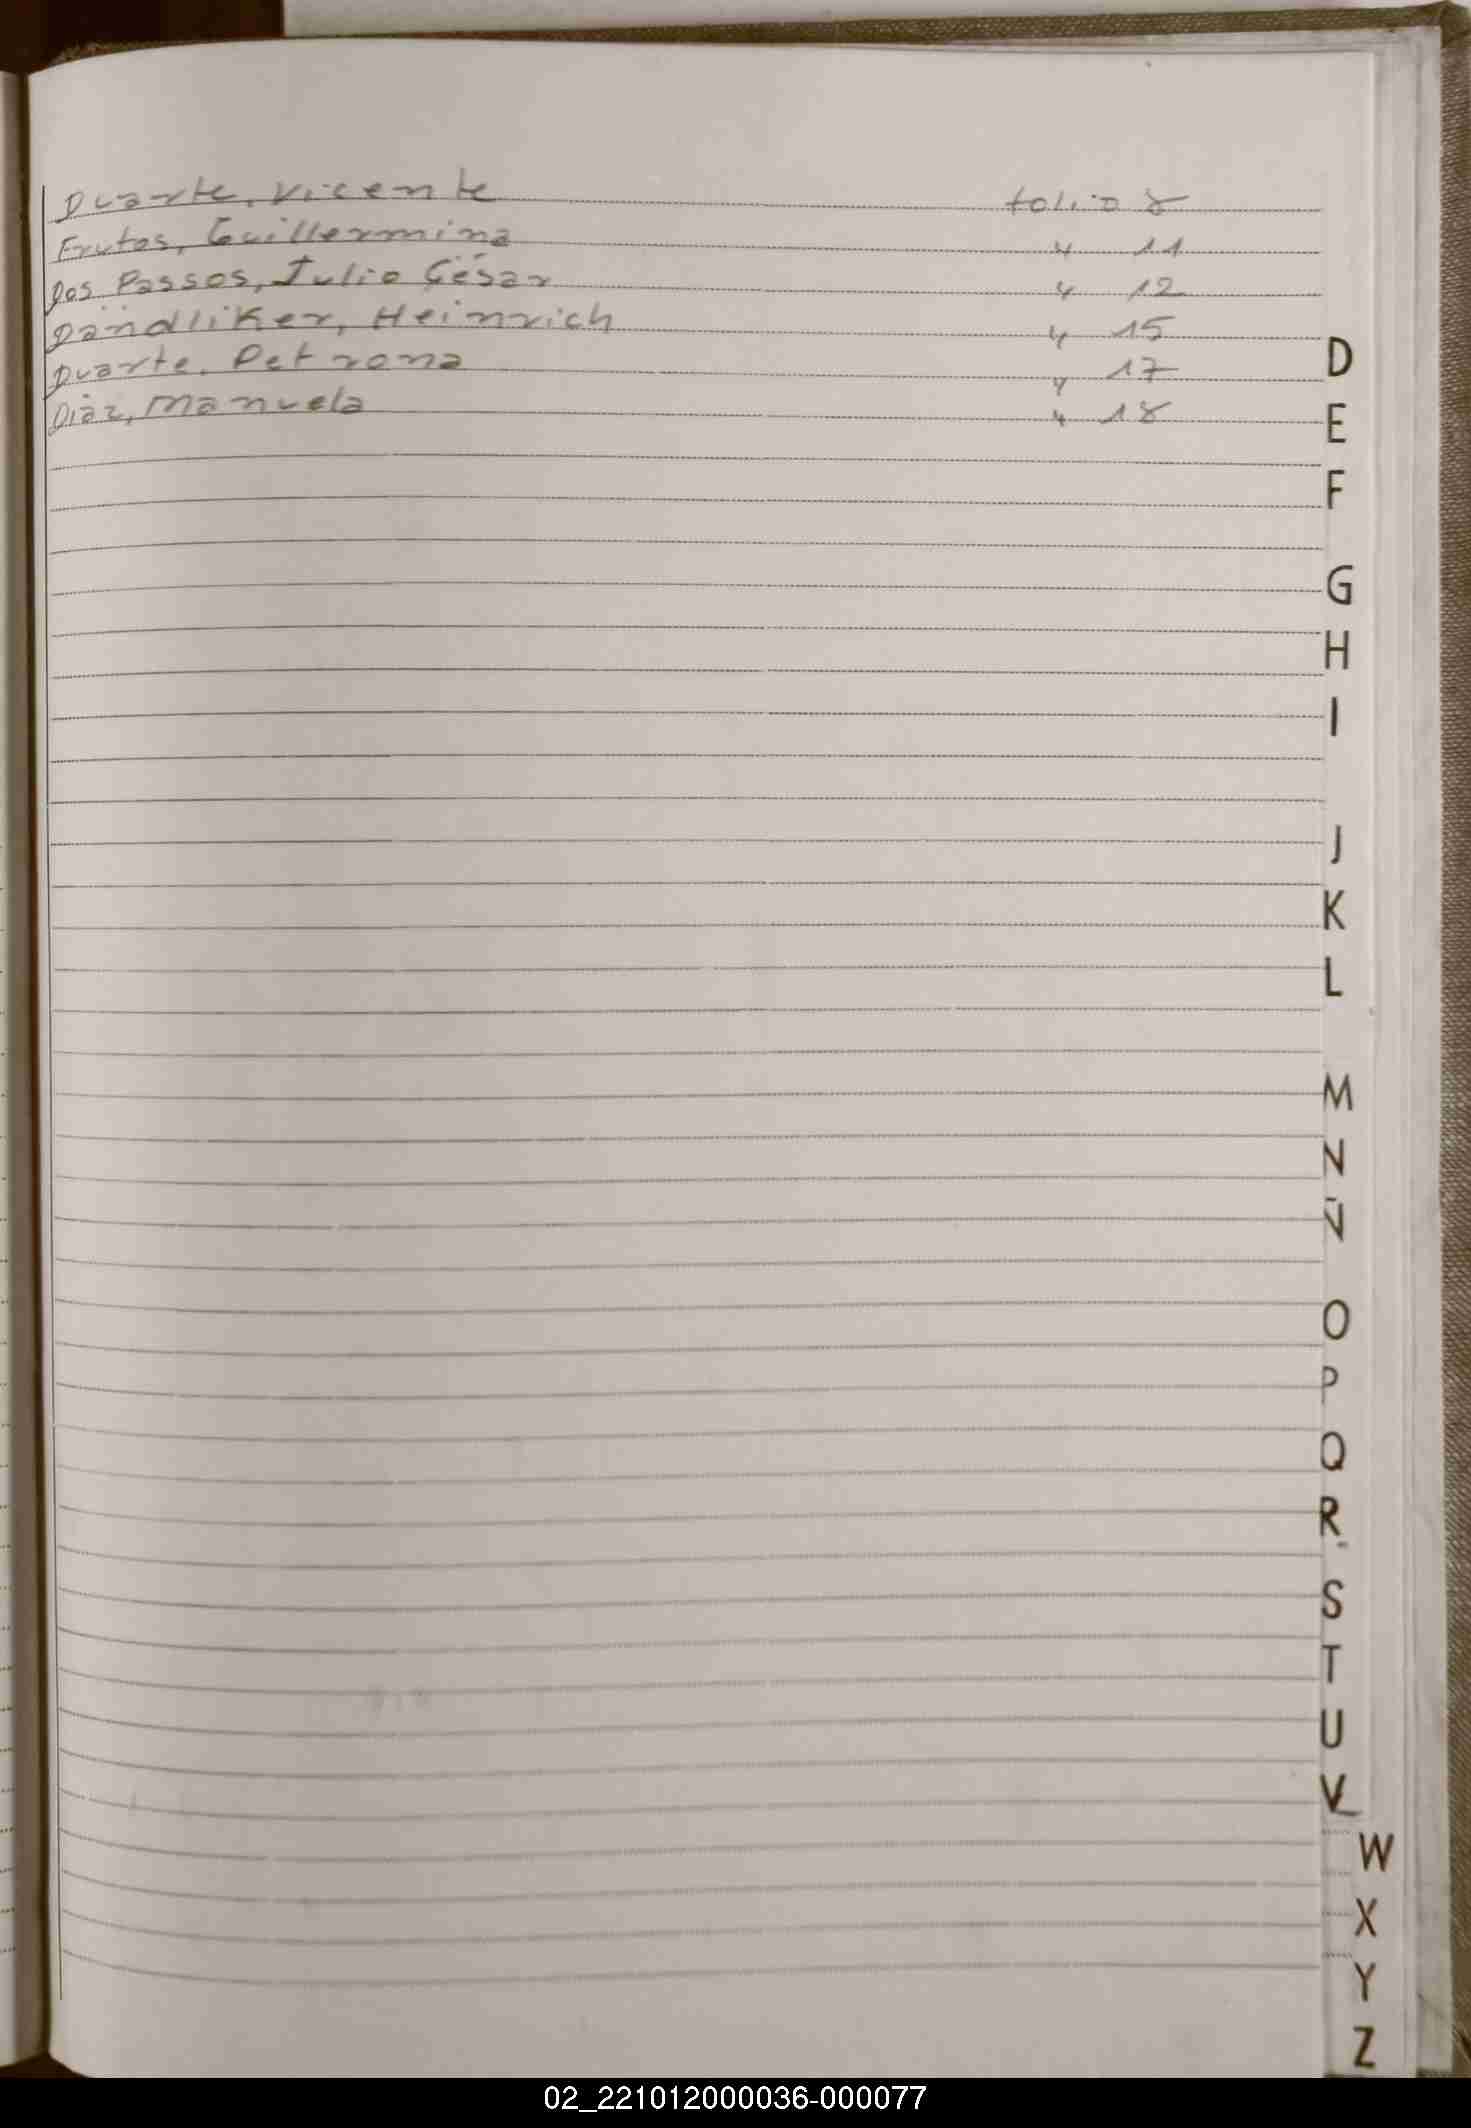 Duarte, Vicente folio 8
Frutos, Guillermina " 11
dos Passos, Julio César " 12
Dändliker, Heinrich " 15
Duarte, Petrona " 17
Diaz, Manuela " 18
D
E
F
G
H
I
J
K
L
M
N
Ñ
O
P
Q
R
S
T
U
V
W
X
Y
Z
02_221012000036-000077